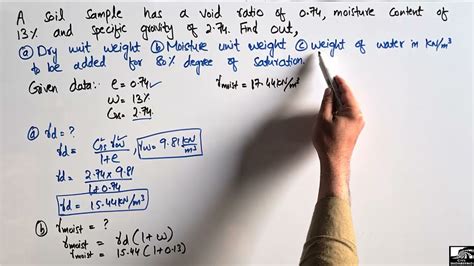 A soil sample has a void ratio of 0.74, moisture content of
13% and specific gravity of 2.74. Find out,
(a) Dry unit weight (b) Moisture unit weight (c) weight of water in KN/m³
to be added for 80% degree of saturation.
Given data: e = 0.74 ✓
ω = 13%
Gs = 2.74
γmoist = 17.44 KN/m³
(a) γd = ?
γd = Gs γω / 1+e
γω = 9.81 KN/m³
γd = 2.74 × 9.81 / 1+0.74
γd = 15.44 KN/m³
(b) γmoist = ?
γmoist = γd (1+ω)
γmoist = 15.44 (1+0.13)